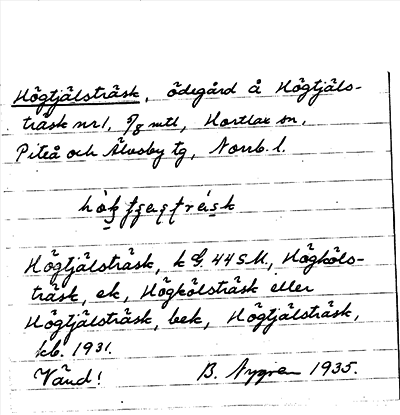 Högtjälsträsk, ödegård å Högtjäls-
träsk nr 1, 5/8 mtl, Hortlax sn,
Piteå och Älvsby tg, Norrb. l.
Högtjälsträsk, k 44 S.M., Högköls-
träsk, ek, Högkölsträsk eller
Högtjälsträsk, bek, Högtjälsträsk,
kb. 1931.
Vänd! B. Nygren 1935.